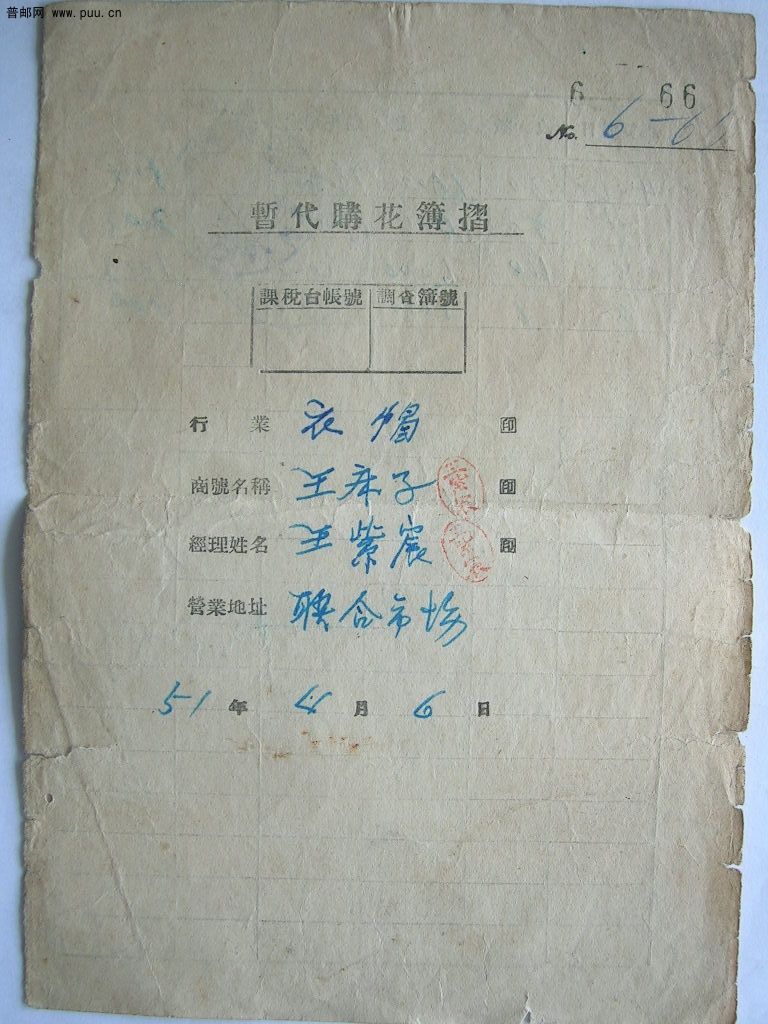 普邮网 www.puu.cn
6 66
No. 6-6
暫代購花簿摺
課稅台帳號 調查簿號
行業 衣帽 印
商號名稱 王麻子 印
經理姓名 王紫宸 印
營業地址 联合市场
51年4月6日